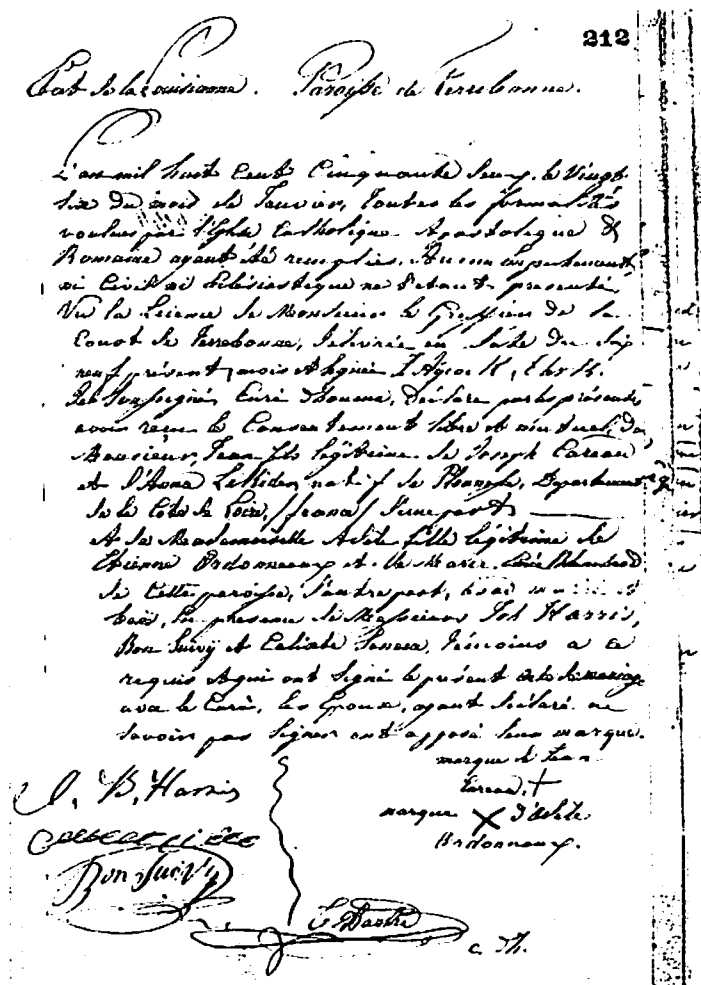 212
Etat de la Louisianne. Paroisse de Terrebonne.
L'an mil huit Cent Cinquante deux, le Vingt
Six du mois de Janvier, toutes les formalités
voulues par l'Eglise Catholique Apostolique &
Romaine ayant été remplies, Aucun empêchement
ni Civil ni Eclésiastique ne s'étant présenté
Vu la Licence de Monsieur le Greffier de la
Court de Terrebonne, délivrée en date du dix
neuf présent mois et Signée
Je Soussigné, Curé d'houma, déclare par les présentes
avoir reçu le Consentement libre et mutuel, de
Monsieur, Jean fils légitime de Joseph Careau
et d'Anna natif de Département
de la Côte de /france/ d'une part
et de Mademoiselle Adele fille légitime de
Etienne Ordonneaux et de Marie
de Cette paroisse, d'autre part,
En présence de Messieurs Jos Harris,
Bon Suivy et témoins a ce
requis et qui ont Signé le présent acte de mariage
avec le Curé, les Epoux, ayant déclaré ne
Savoir pas Signer ont apposé leur marque.
marque de Jean
Careau, +
marque X d'Adele
Ordonneaux.
J. B. Harris
Bon Suivy
C. Th.